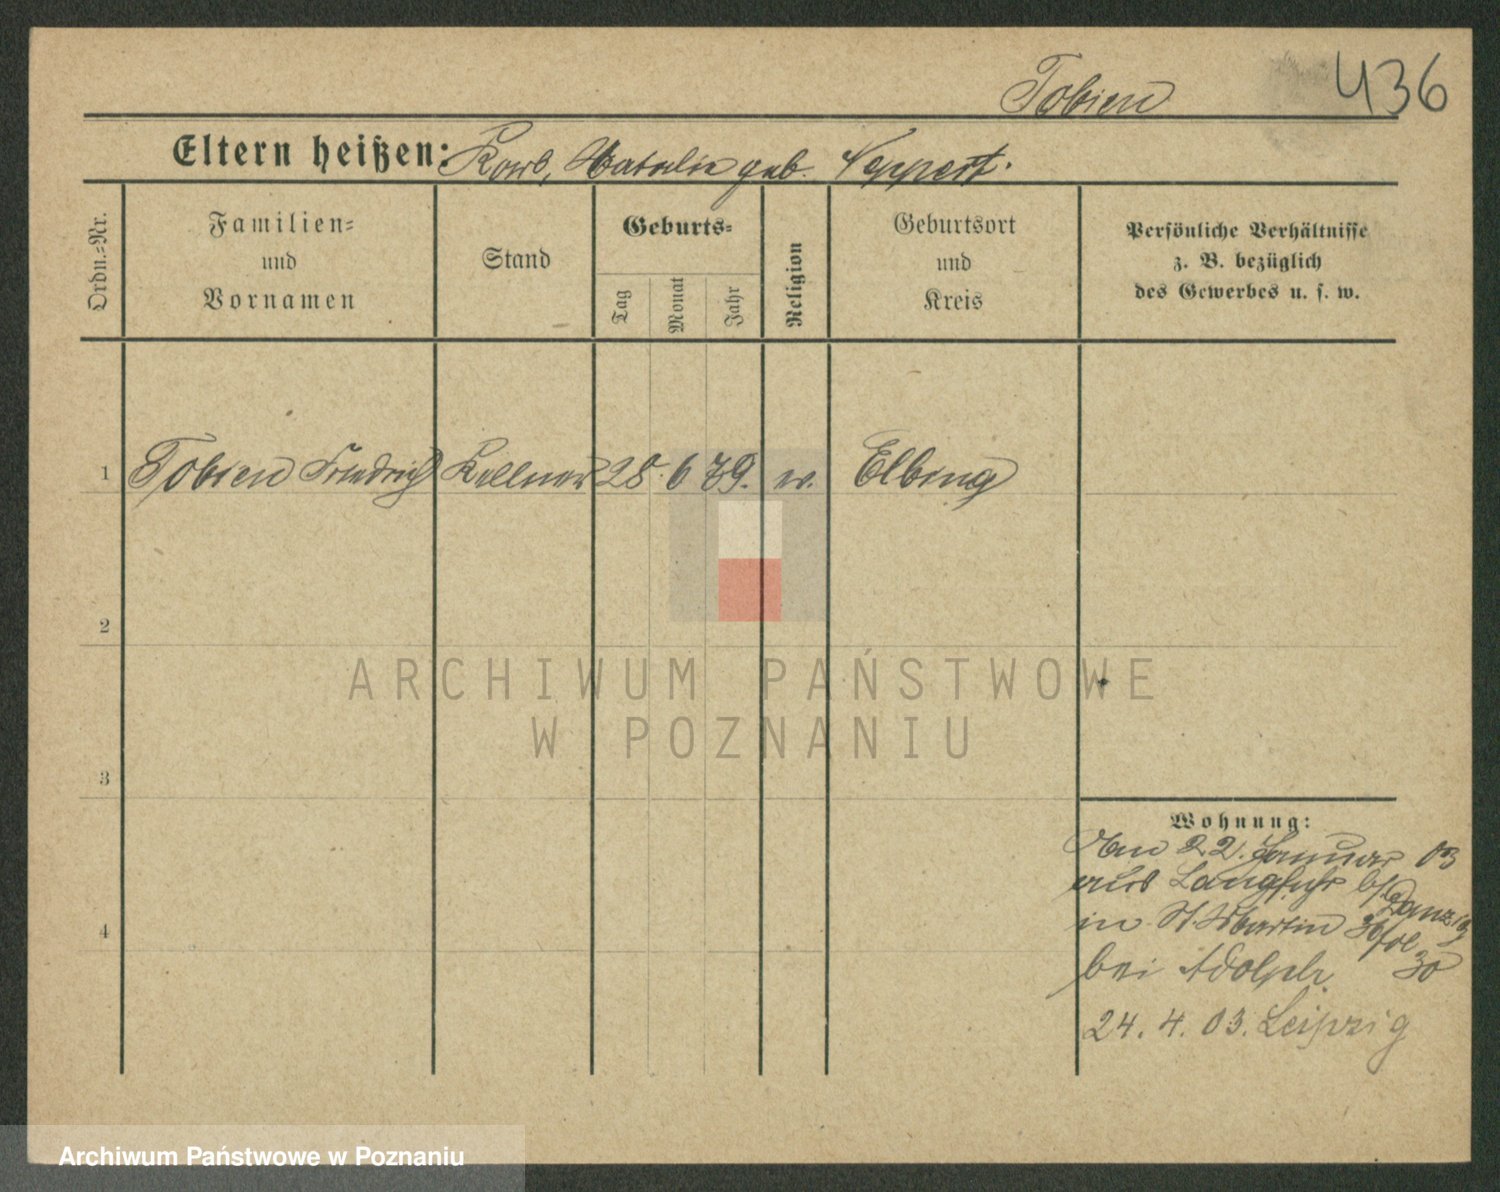 Tobien 436
Eltern heißen: Karl, Natalie geb. Neppert.
Ordn.-Nr.
Familien-
und
Vornamen
Stand
Geburts-
Tag
Monat
Jahr
Religion
Geburtsort
und
Kreis
Persönliche Verhältnisse
z. B. bezüglich
des Gewerbes u. s. w.
1 Tobien Friedrich Kellner 28. 6 79. ev. Elbing
2
3
4
ARCHIWUM PAŃSTWOWE
W POZNANIU
Wohnung:
Am 22. Januar 03
aus Langfuhr b/Danzig
in St. Martin 30
bei Adolph.
24. 4. 03. Leipzig
Archiwum Państwowe w Poznaniu